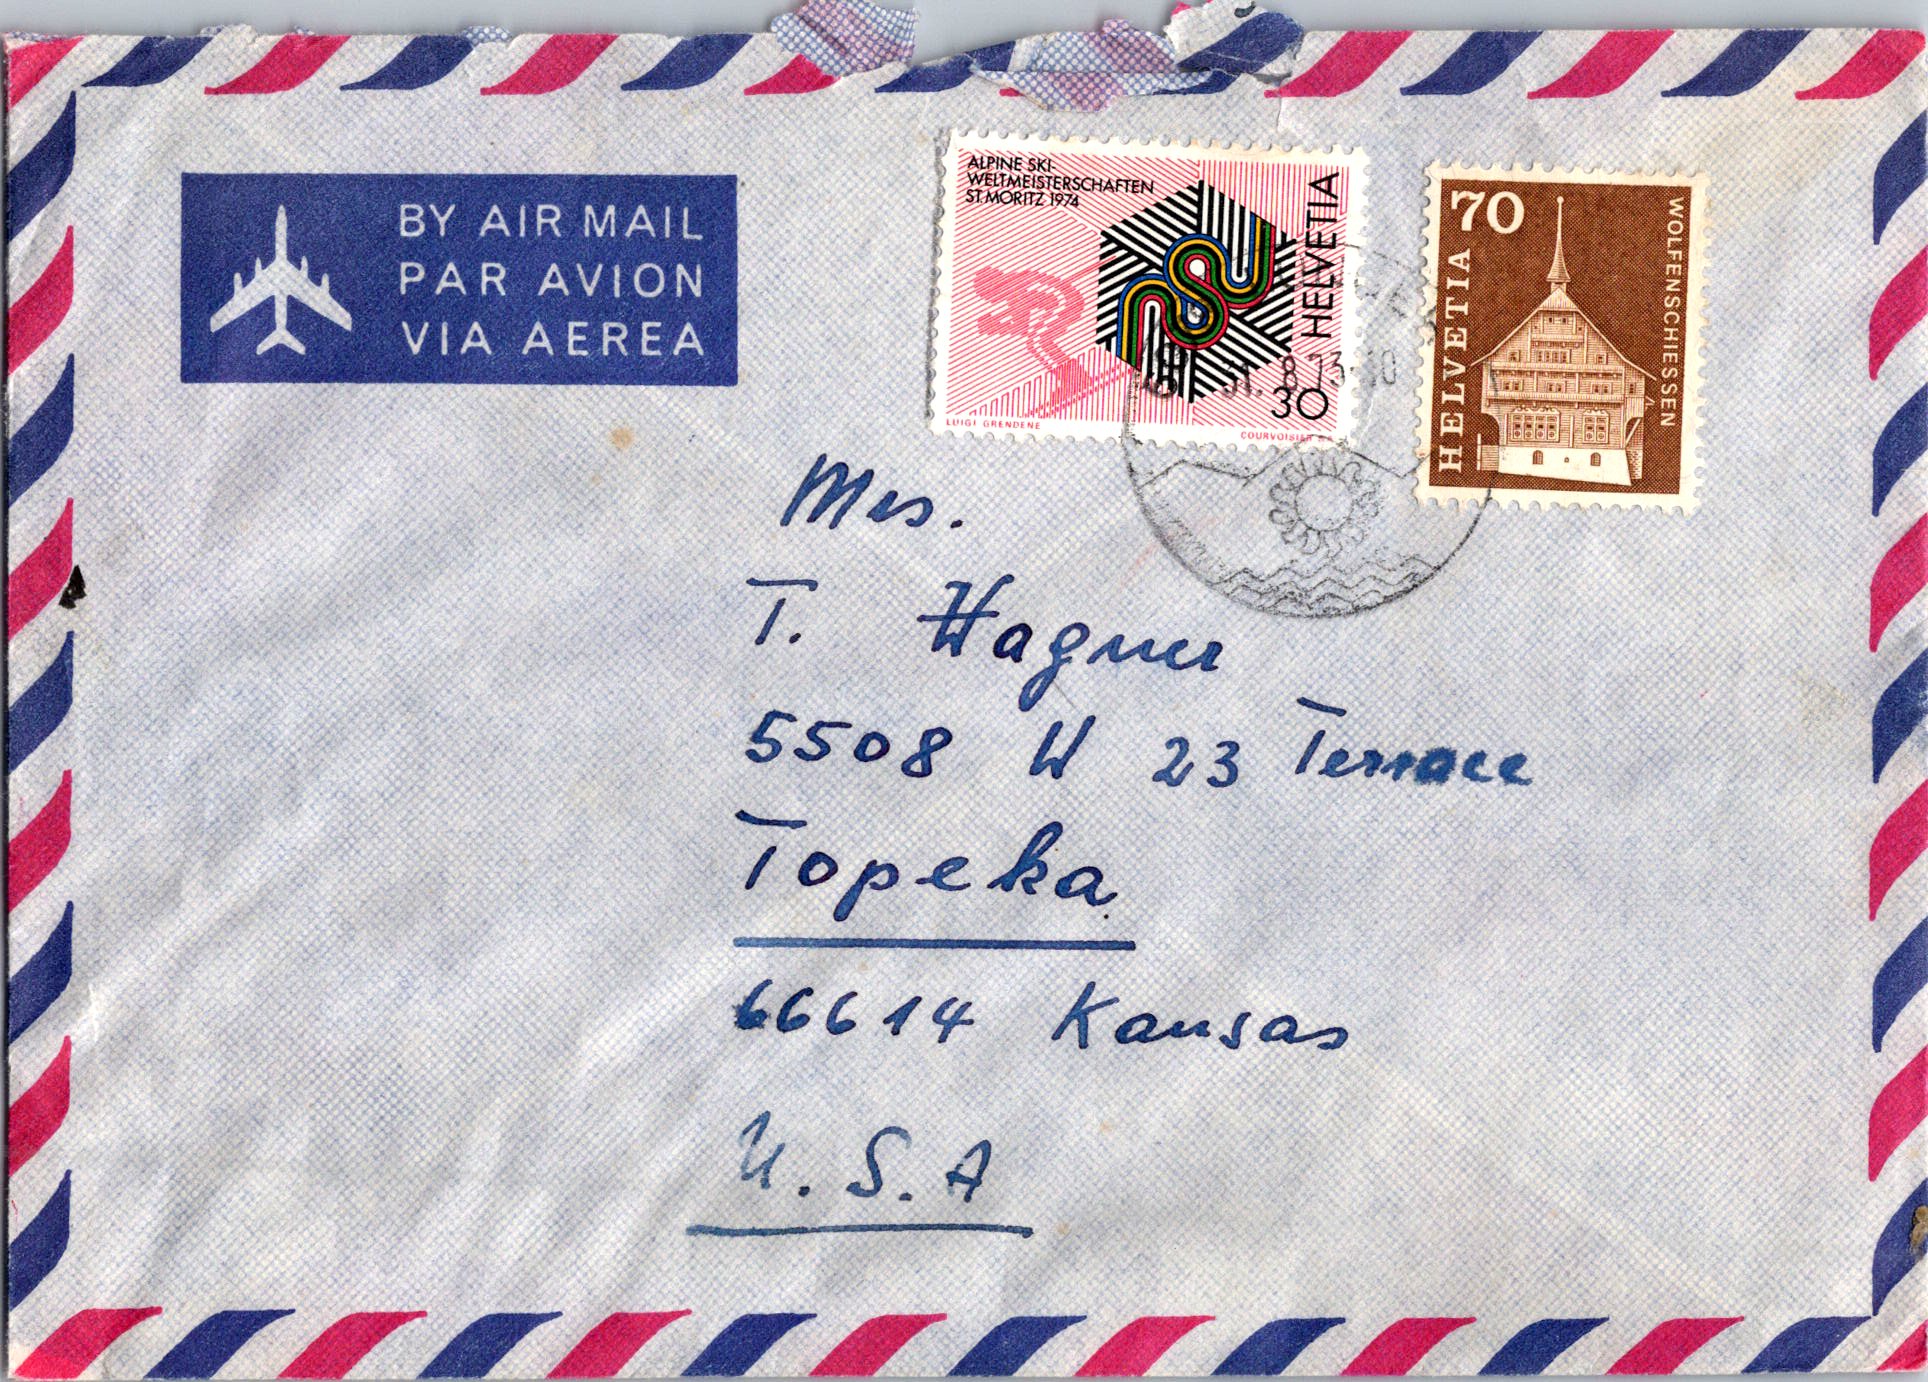 BY AIR MAIL
PAR AVION
VIA AEREA
ALPINE SKI-
WELTMEISTERSCHAFTEN
ST. MORITZ 1974
HELVETIA
30
LUIGI GRENDENE
COURVOISIER S.A.
70
HELVETIA
WOLFENSCHIESSEN
31. 8.73-10
Mrs.
T. Wagner
5508 W 23 Terrace
Topeka
66614 Kansas
U.S.A